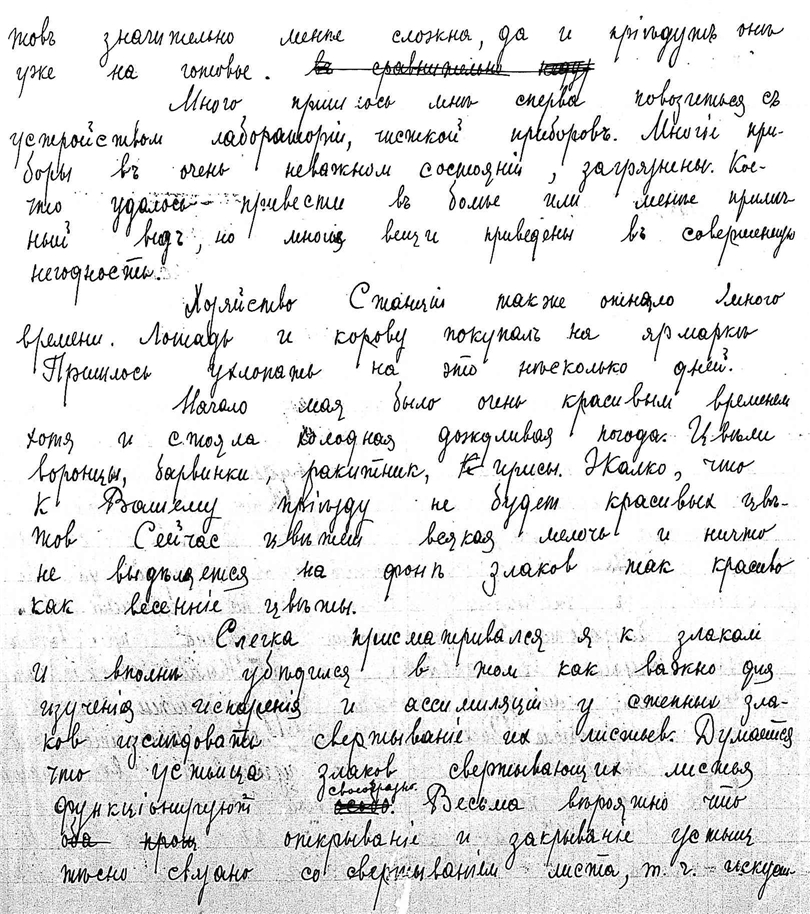 товъ значительно менѣе сложна, да и прiѣдутъ онѣ
уже на готовое. въ сравнительно
Много пришлось мнѣ сперва повозиться съ
устройствомъ лабораторiй, чисткой приборовъ. Многiе при-
боры въ очень неважном состоянiй, загрязнены. Кое-
что удалось привести въ болѣе или менѣе прилич-
ный видъ, но многiя вещи приведены въ совершенную
негодность.
Хозяйство Станцiи также отняло много
времени. Лошадь и корову покупалъ на ярмаркѣ
Пришлось ухлопать на это нѣсколько дней.
Начало мая было очень красивым временем
хотя и стояла холодная дождливая погода. Цвѣли
воронцы, барвинки, ракитник, ирисы. Жалко, что
к Вашему прiѣзду не будет красивых цвѣ-
тов Сейчас цвѣтет всякая мелочь и ничто
не выдѣляется на фонѣ злаков так красиво
как весеннiе цвѣты.
Слегка присматривался я к злакам
и вполнѣ убѣдился в том как важно для
изученiя испаренiя и ассимиляцiи у степных зла-
ков изслѣдовать свертыванiе их листьев. Думается
что устьица злаков свертывающих листья
своеобразно.
функцiонируют особо. Весьма вѣроятно что
оба прои открыванiе и закрыванiе устьиц
тѣсно связано со свертыванiем листа, т. ч. искусс-